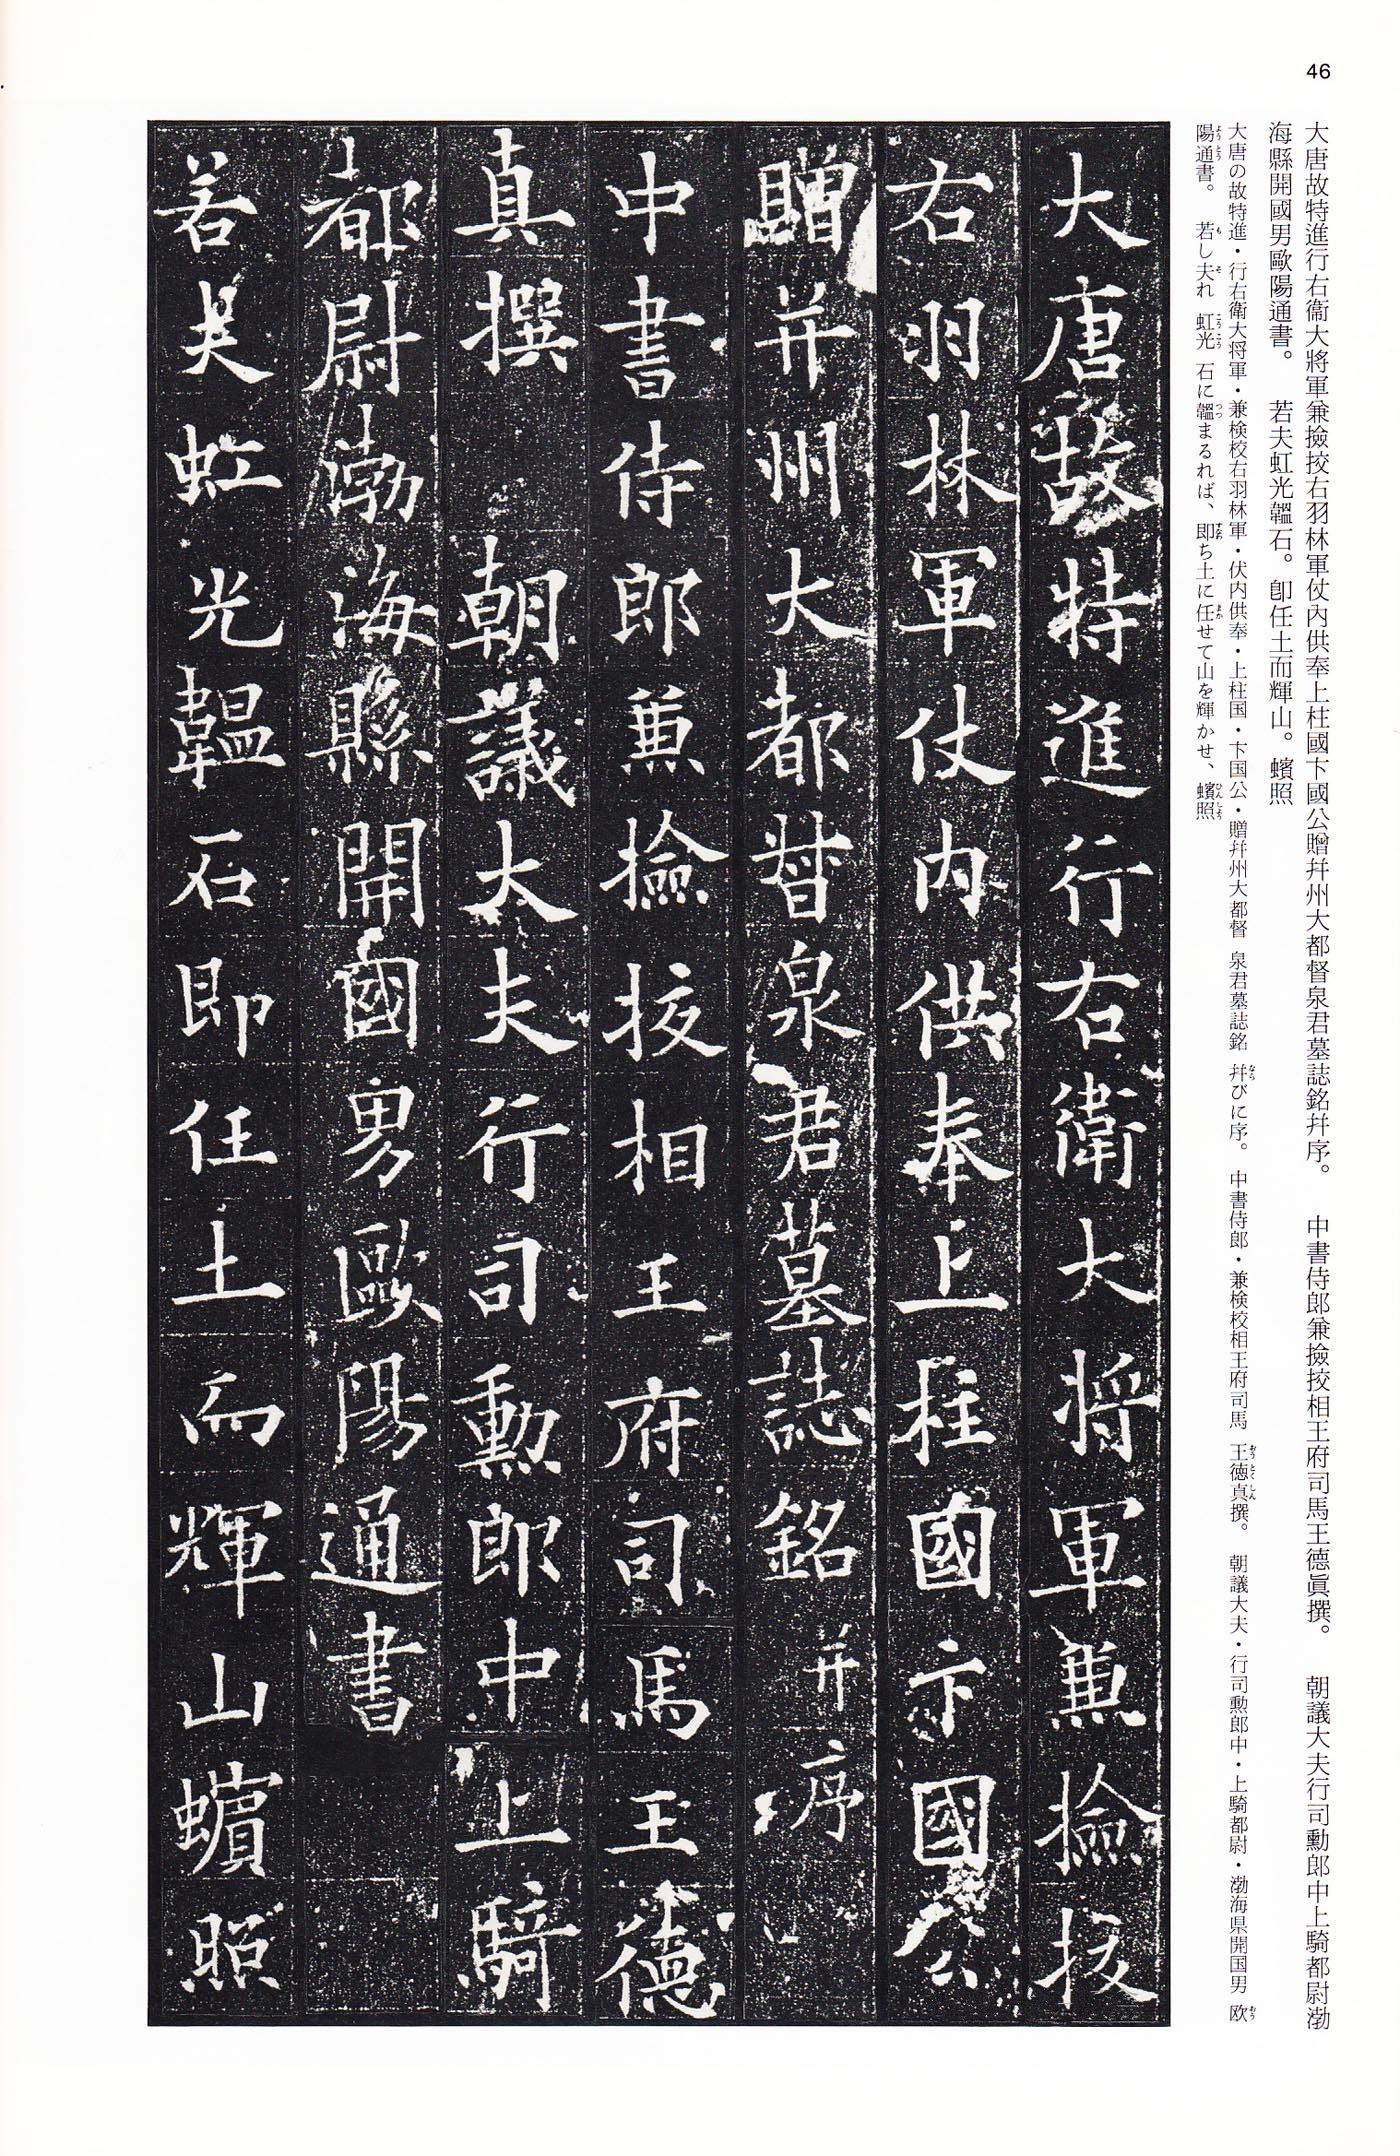 46
大唐故特進行右衞大將軍兼撿挍右羽林軍仗內供奉上柱國卞國公贈幷州大都督泉君墓誌銘幷序。　中書侍郎兼撿挍相王府司馬王德眞撰。　朝議大夫行司勳郎中上騎都尉渤
海縣開國男歐陽通書。　若夫虹光韞石。卽任土而輝山。蠙照
大唐の故特進・行右衛大将軍・兼検校右羽林軍・伏内供奉・上柱国・卞国公・贈幷州大都督　泉君墓誌銘　幷びに序。　中書侍郎・兼検校相王府司馬　王徳真撰。　朝議大夫・行司勲郎中・上騎都尉・渤海県開国男　欧
陽通書。　若し夫れ　虹光　石に韞まるれば、即ち土に任せて山を輝かせ、蠙照
大唐故特進行右衛大将軍兼撿挍
右羽林軍仗内供奉上柱國卞國公
贈并州大都督泉君墓誌銘并序
中書侍郎兼撿挍相王府司馬王德
真撰　朝議大夫行司勳郎中上騎
都尉渤海縣開國男歐陽通書
若夫虹光韞石即任土而輝山蠙照